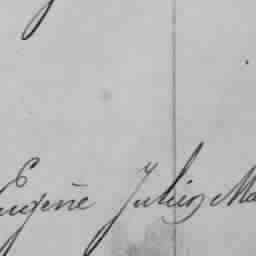 Eugène Julien Ma